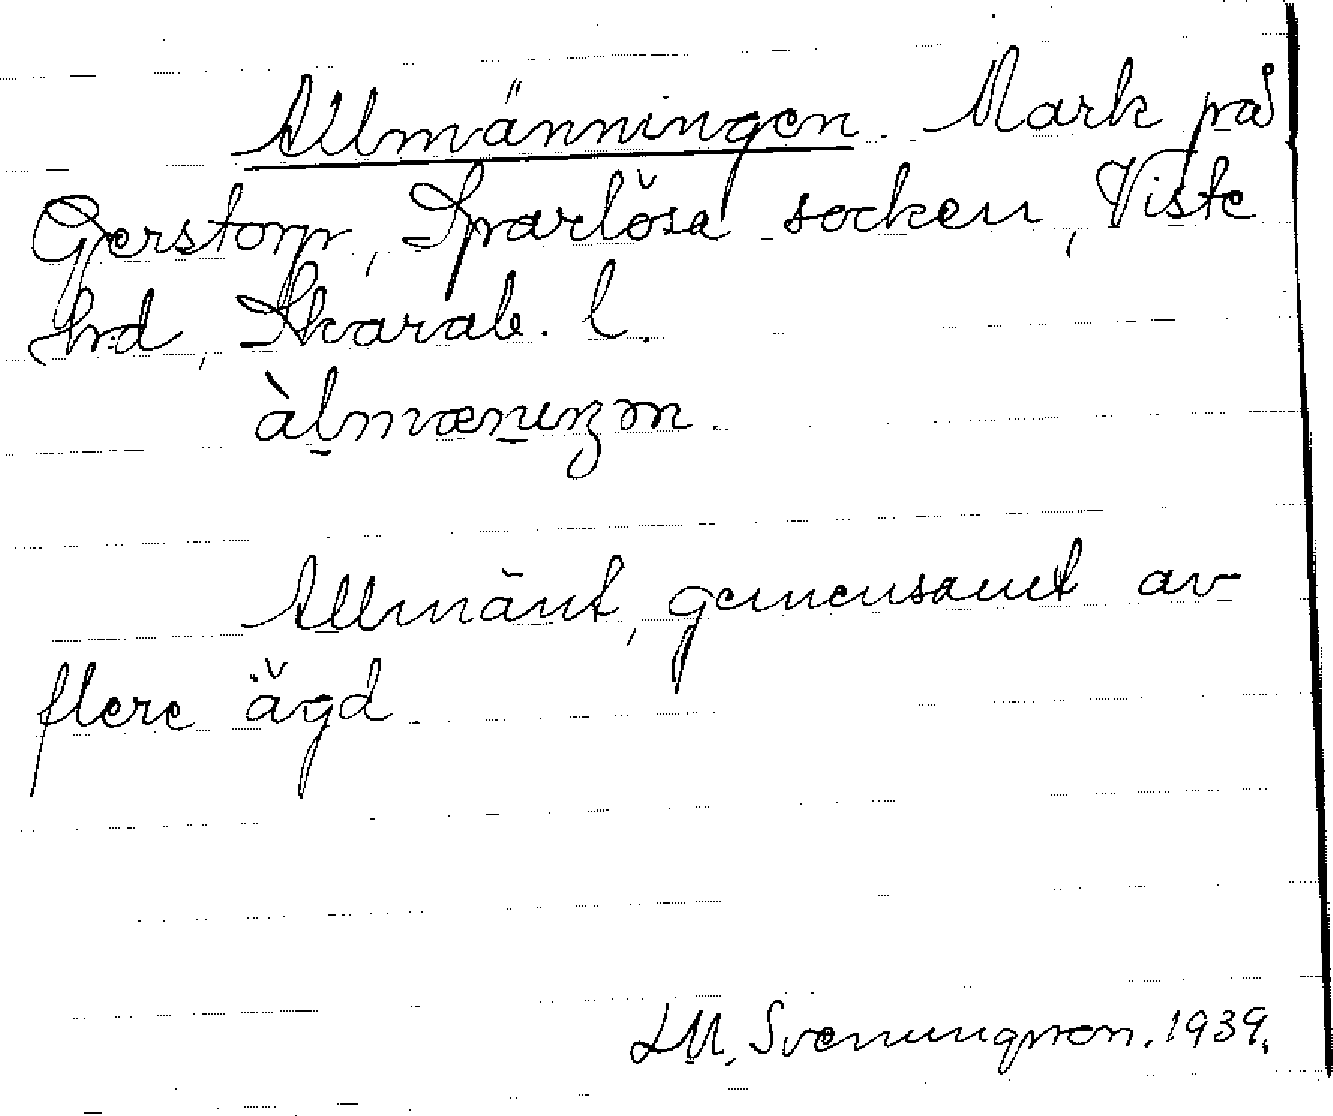 Allmänningen. Mark på
Gerstorp, Sparlösa socken, Viste
hrd, Skarab. l.
àlmænıŋən
Allmänt, gemensamt av
flere ägd
LM. Svenungsson. 1939.